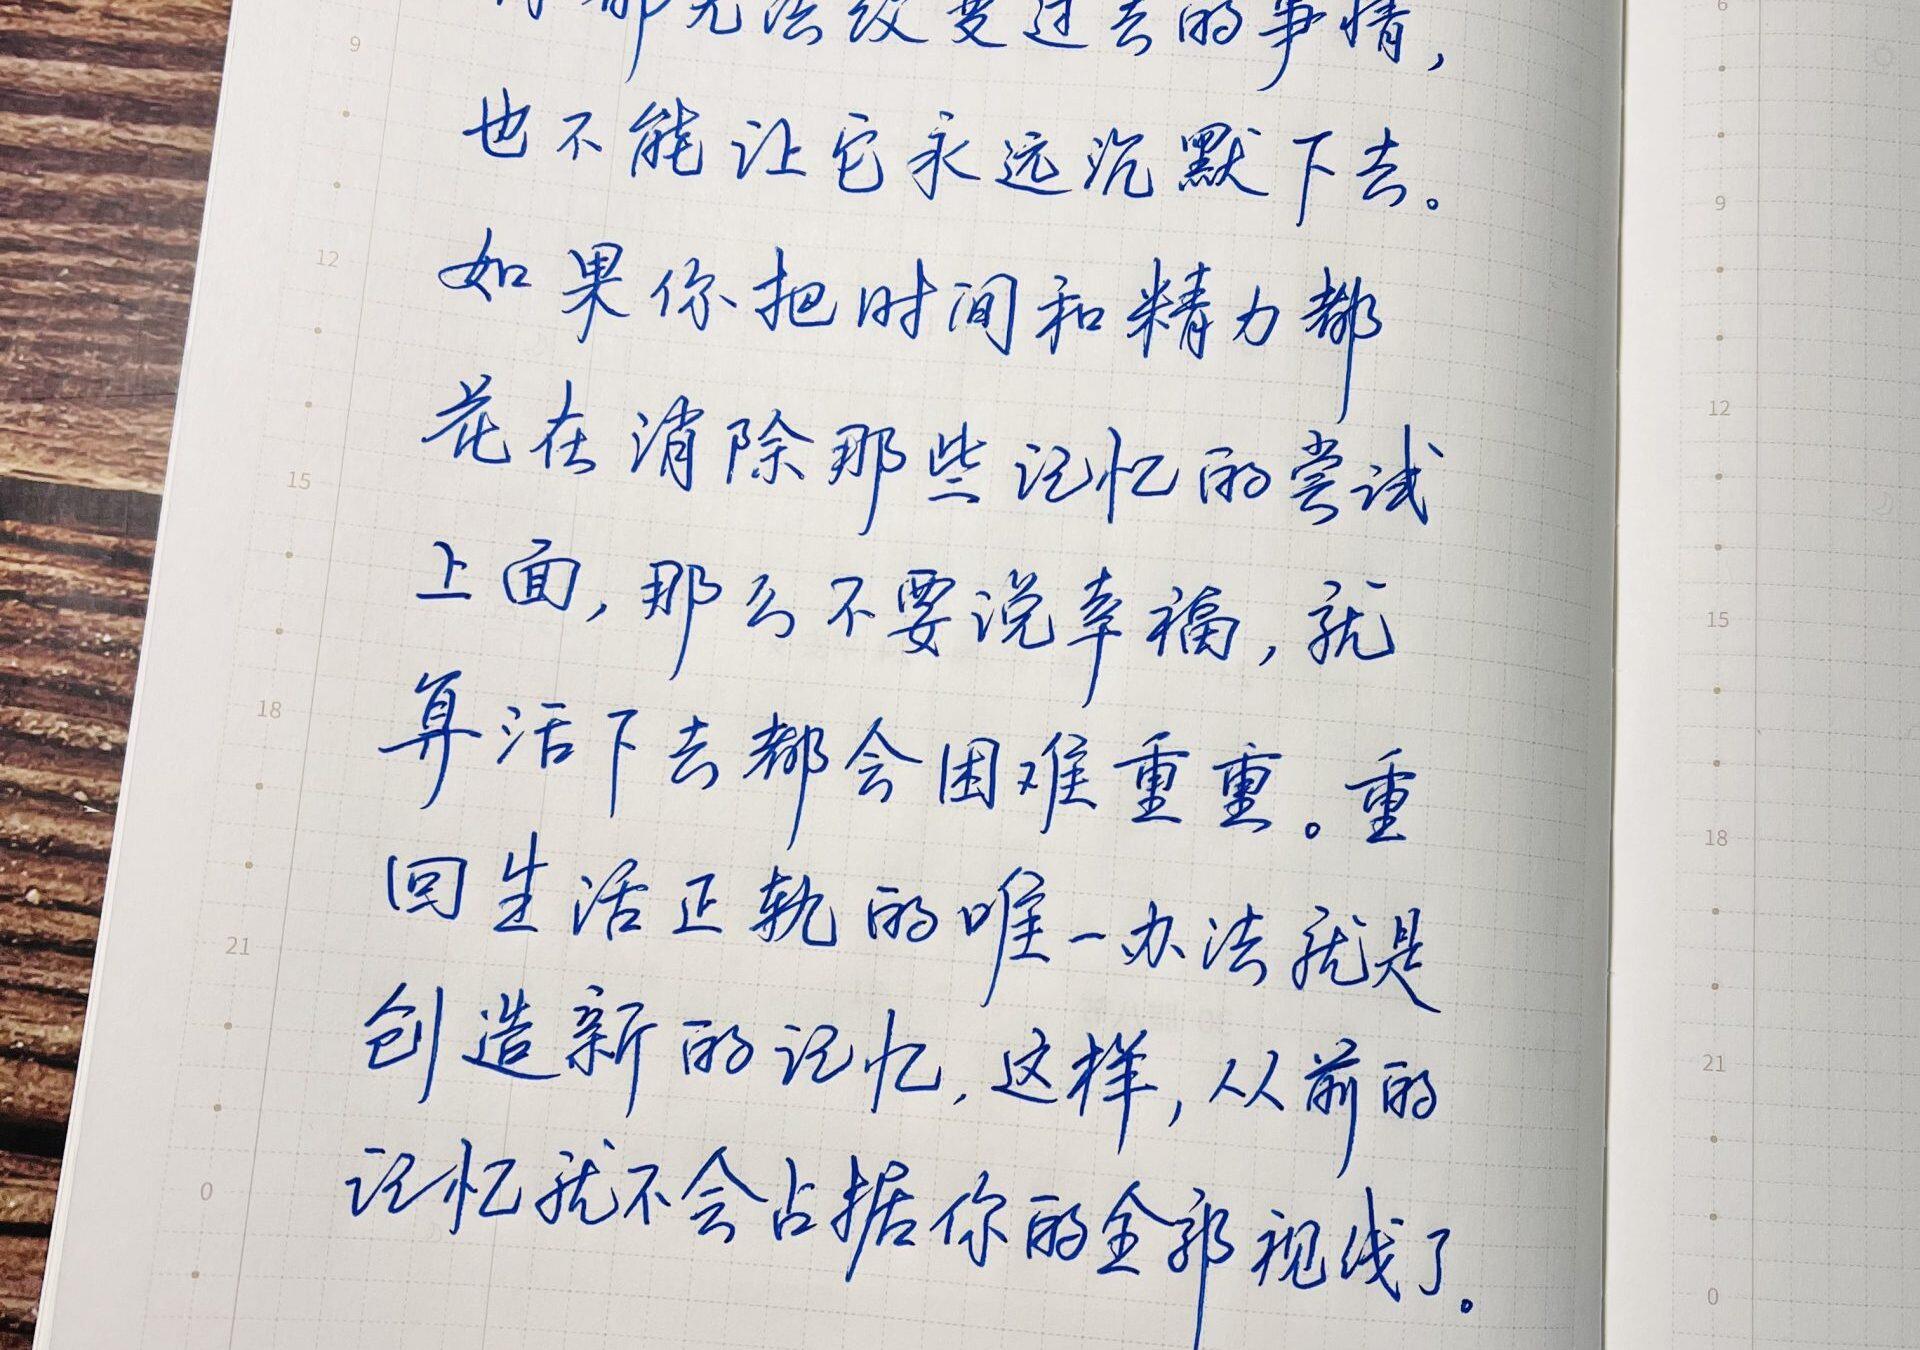 都无法改变过去的事情，
也不能让它永远沉默下去。
如果你把时间和精力都
花在消除那些记忆的尝试
上面，那么不要说幸福，就
算活下去都会困难重重。重
回生活正轨的唯一办法就是
创造新的记忆，这样，从前的
记忆就不会占据你的全部视线了。
9
12
15
18
21
0
6
9
12
15
18
21
0